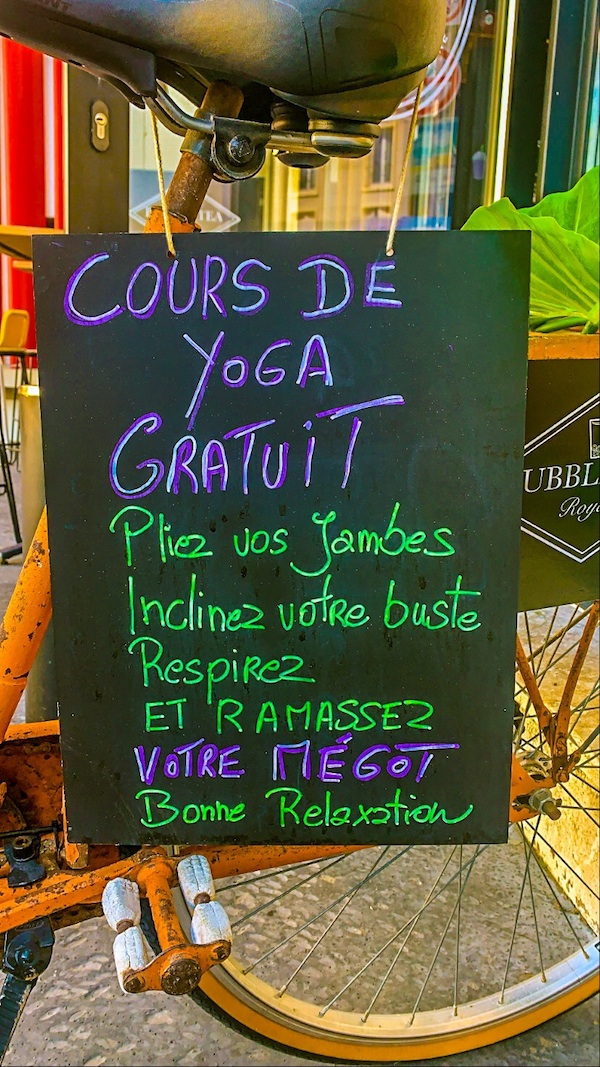 COURS DE
YOGA
GRATUIT
Pliez vos Jambes
Inclinez votre buste
Respirez
ET RAMASSEZ
VOTRE MÉGOT
Bonne Relaxation